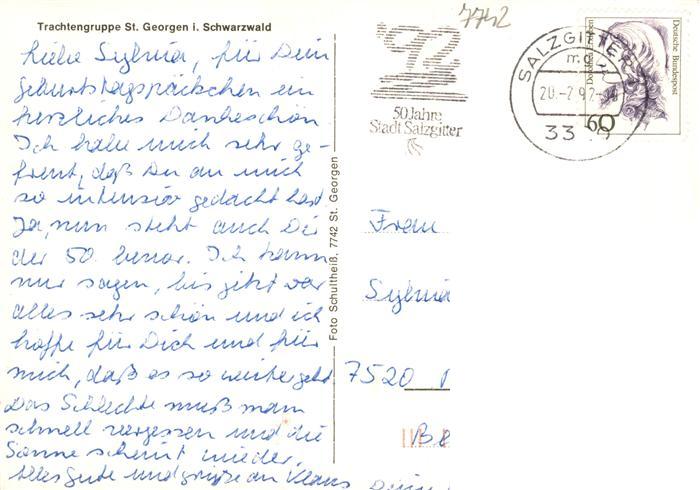 Trachtengruppe St. Georgen i. Schwarzwald
7742
Liebe Sylvia, für Dein
Geburtstagspäckchen ein
herzliches Dankeschön
Ich habe mich sehr ge-
freut, daß Du an mich
so intensiv gedacht hast
Ja, nun steht auch Dir
der 50. bevor. Ich kann
nur sagen, bis jetzt war
alles sehr schön und ich
hoffe für Dich und für
mich, daß es so weiter geht
Das Schlechte muß man
schnell vergessen und die
Sonne scheint wieder.
Alles Gute und Grüße an Klaus
Foto Schultheiß, 7742 St. Georgen
'92
50 Jahre
Stadt Salzgitter
SALZGITTER
20.-7.92
33
Deutsche Bundespost
60
Frau
Sylvia
7520